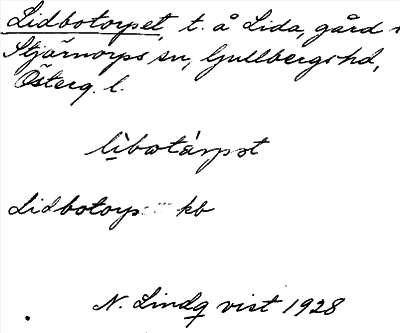 Lidbotorpet, t. å Lida, gård
Stjärnorps sn, Gullbergs hd,
Österg. l.
Lidbotorp kb
N. Lindqvist 1928